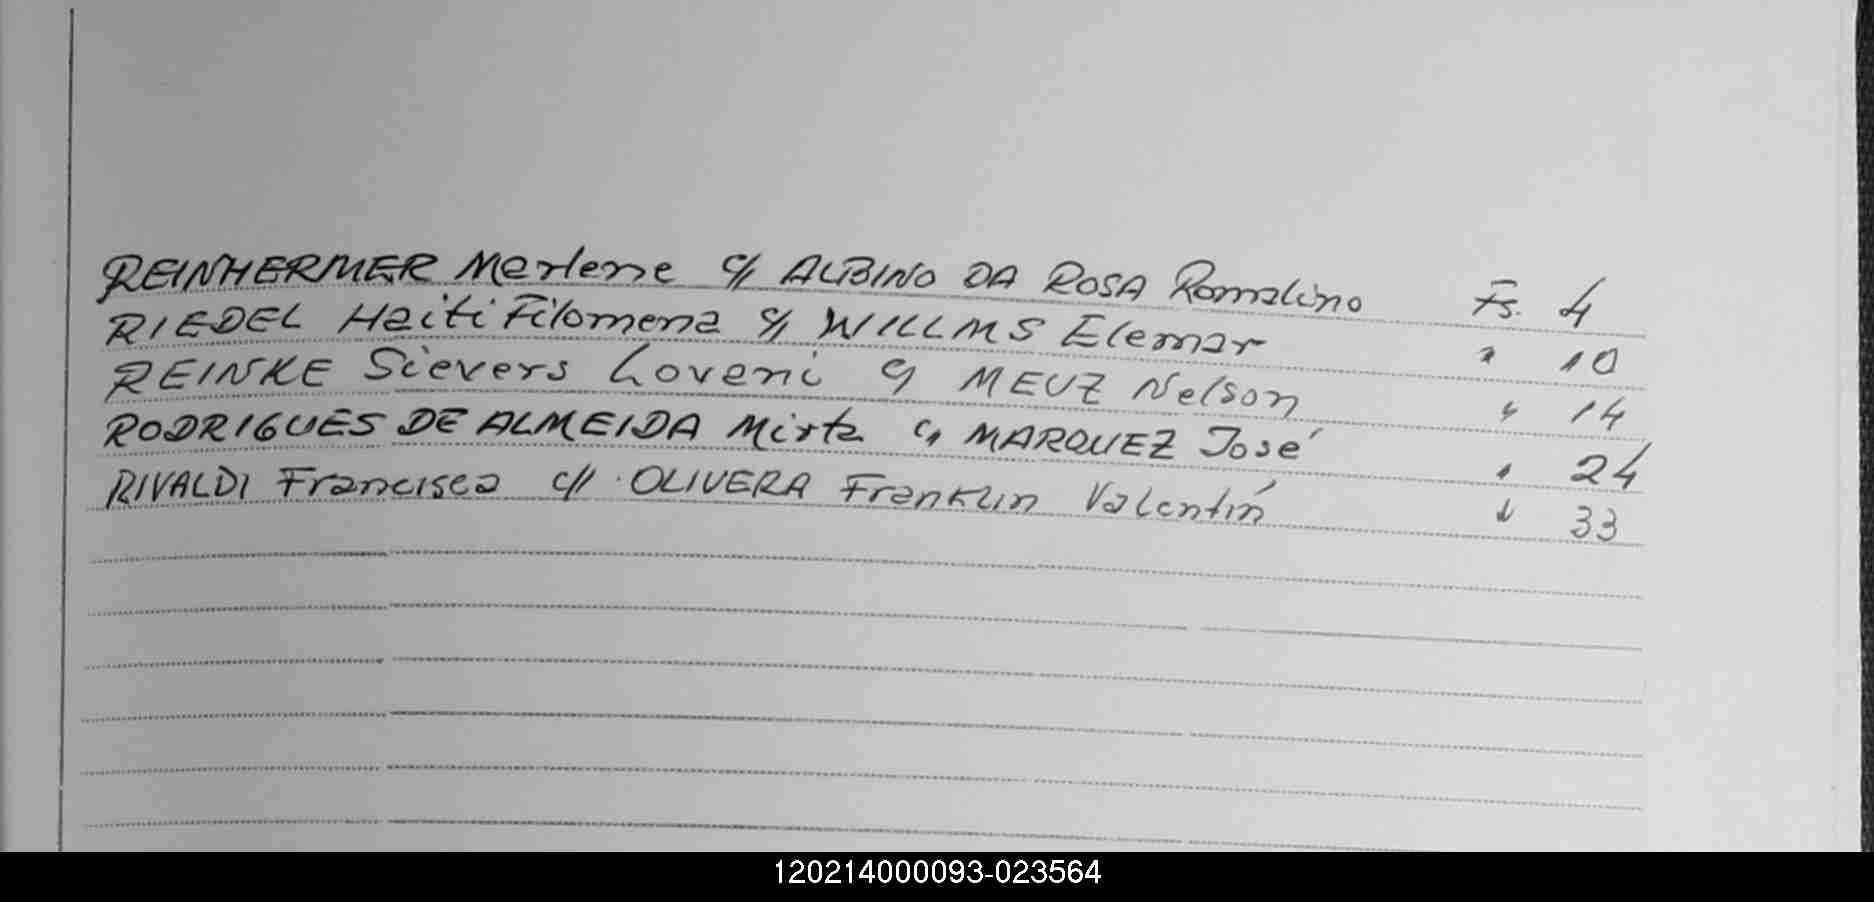 REINHERMER Marlene c/ ALBINO DA ROSA Romalino Fs. 4
RIEDEL Haiti Filomena c/ WILLMS Elemar " 10
REINKE Sievers Loveni c/ MEUZ Nelson " 14
RODRIGUES DE ALMEIDA Mirta c/ MARQUEZ José " 24
RIVALDI Francisca c// OLIVERA Franklin Valentín " 33
120214000093-023564